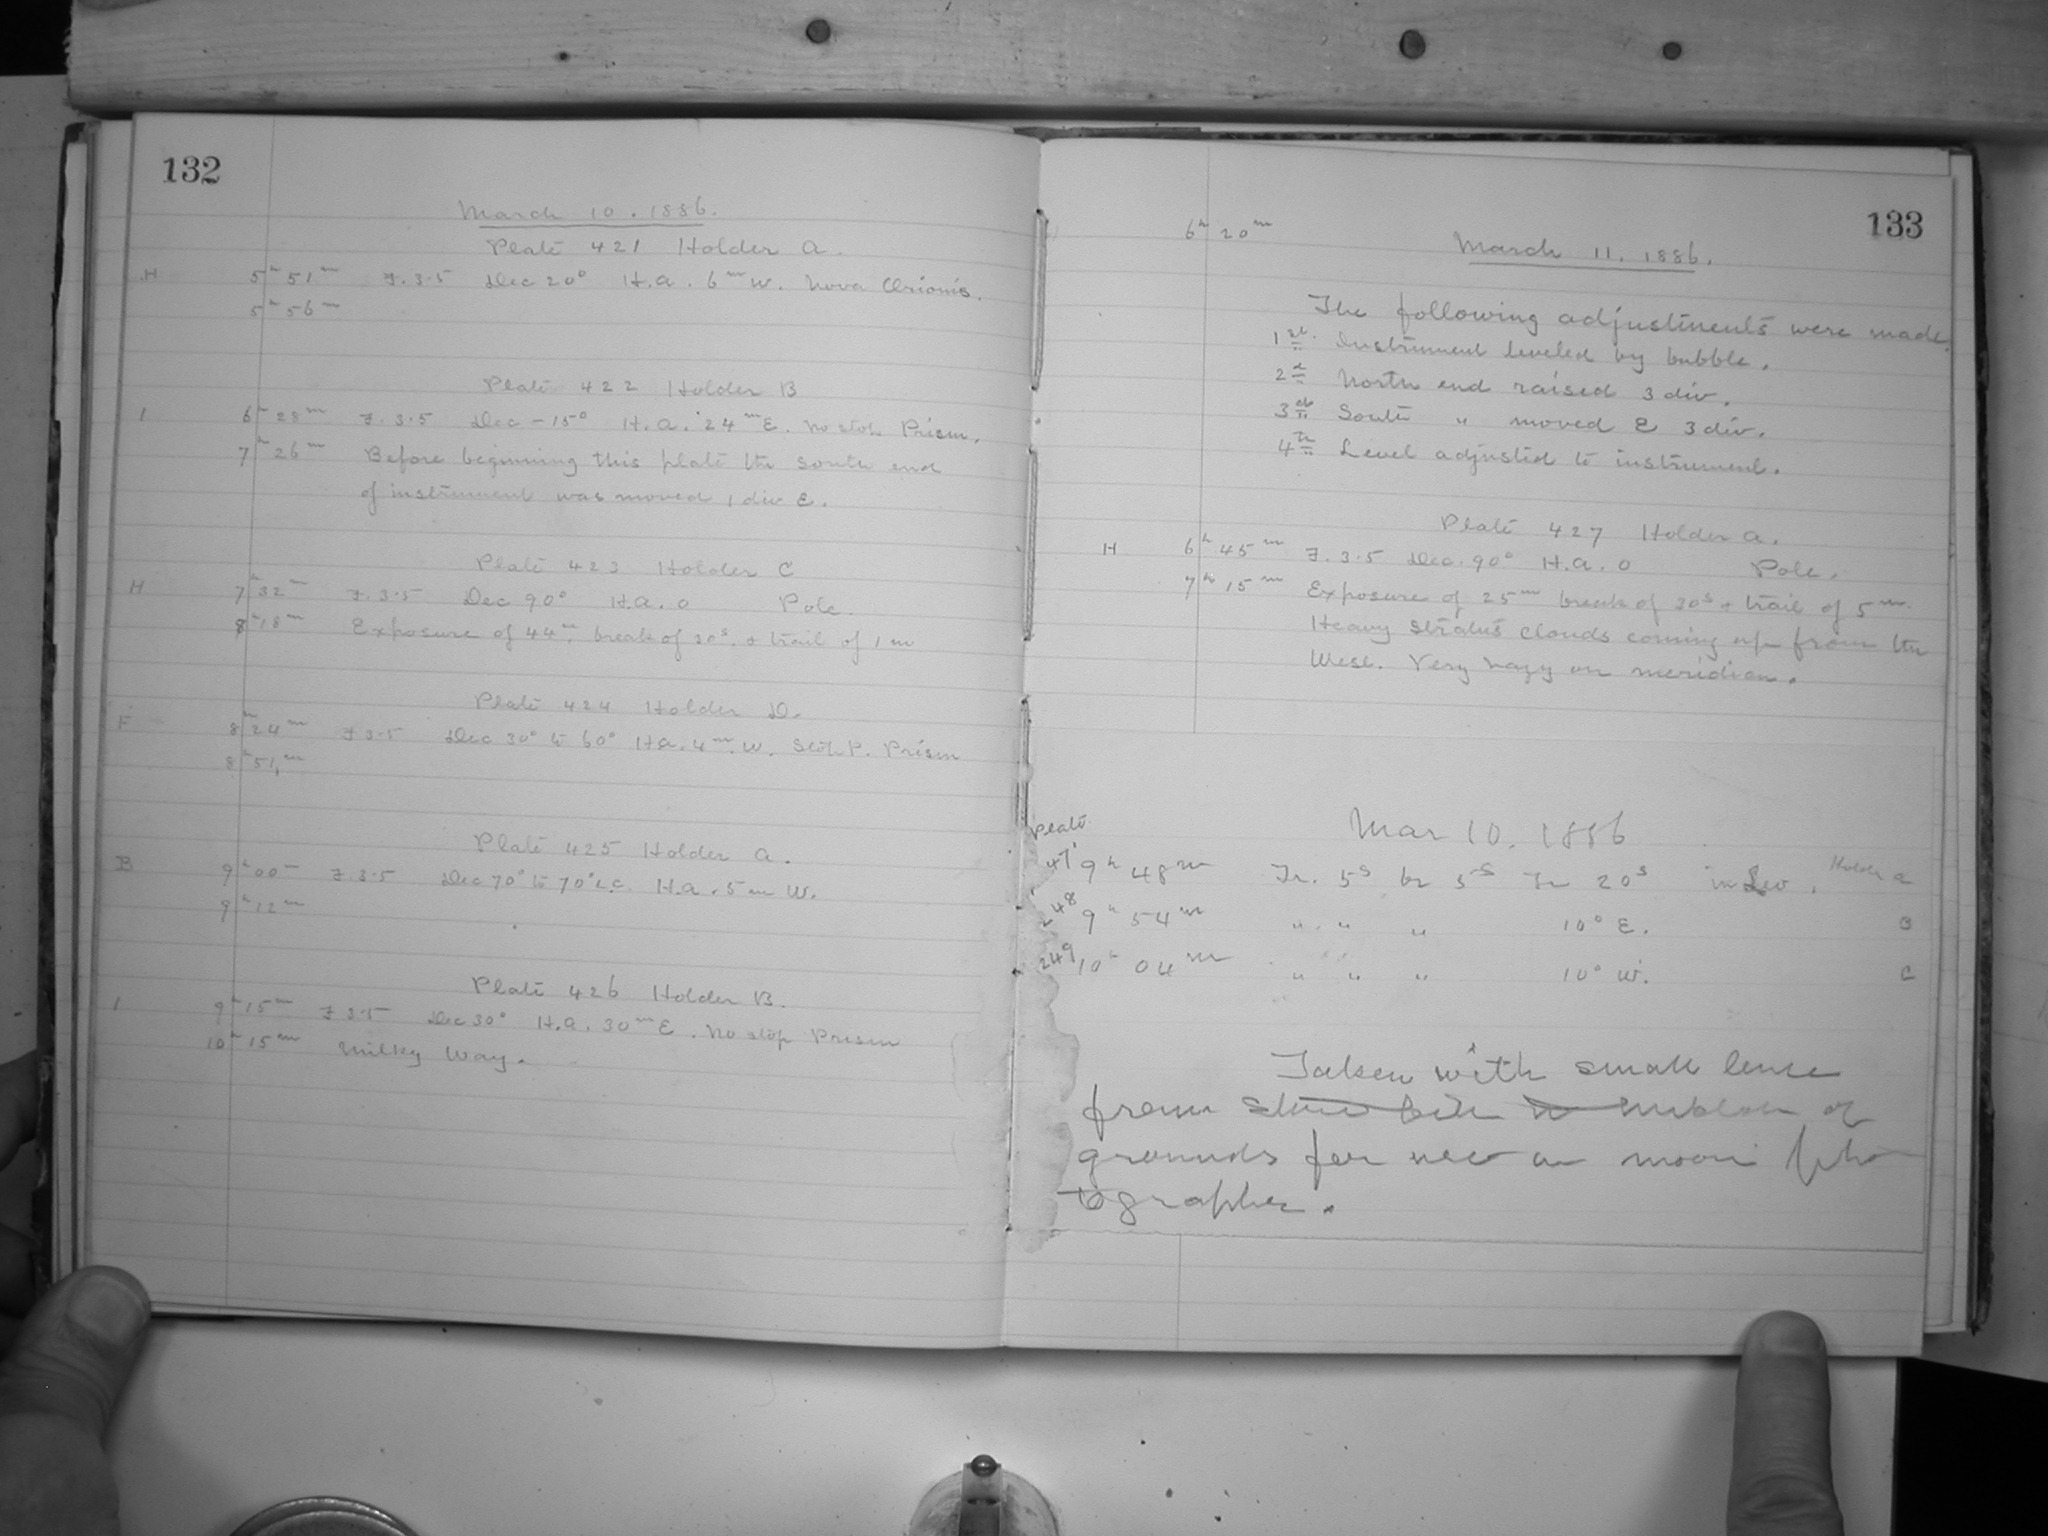 132
March 10. 1886.
Plate 421 Holder A.
H 5h 51m F. 3.5 Dec 20° H.A. 6m W. Nova Orionis.
5h 56m
Plate 422 Holder B
I 6h 28m F. 3.5 Dec -15° H.A. 24m E. No stop Prism.
7h 26m Before beginning this plate the south end
of instrument was moved 1 div E.
Plate 423 Holder C
H 7h 32m F. 3.5 Dec 90° H.A. 0 Pole.
8h 18m Exposure of 44m, break of 30s. + trail of 1m
Plate 424 Holder D.
F 8h 24m F 3.5 Dec 30° to 60° H.A. 4m. W. Stop P. Prism
8h 51m
Plate 425 Holder A.
B 9h 00m F. 3.5 Dec 70° to 70° L.C. H.A. 5m W.
9h 12m
Plate 426 Holder B.
I 9h 15m F 3.5 Dec 30° H.A. 30m E. No stop Prism
10h 15m Milky Way.
133
6h 20m
March 11. 1886.
The following adjustments were made.
1st. Instrument leveled by bubble.
2d North end raised 3 div.
3rd South " moved E 3 div.
4th Level adjusted to instrument.
Plate 427 Holder A.
H 6h 45m F. 3.5 Dec. 90° H.A. 0 Pole.
7h 15m Exposure of 25m break of 30s + trail of 5m.
Heavy stratus clouds coming up from the
West. Very hazy on meridian.
Mar 10. 1886
Plate
47 9h 48m Tr. 5s br 5s Tr 20s in Holder A
248 9h 54m " " " 10° E. B
249 10h 04m " " " 10° W. C
Taken with small lense
from of
grounds for use on moon pho
tographs.